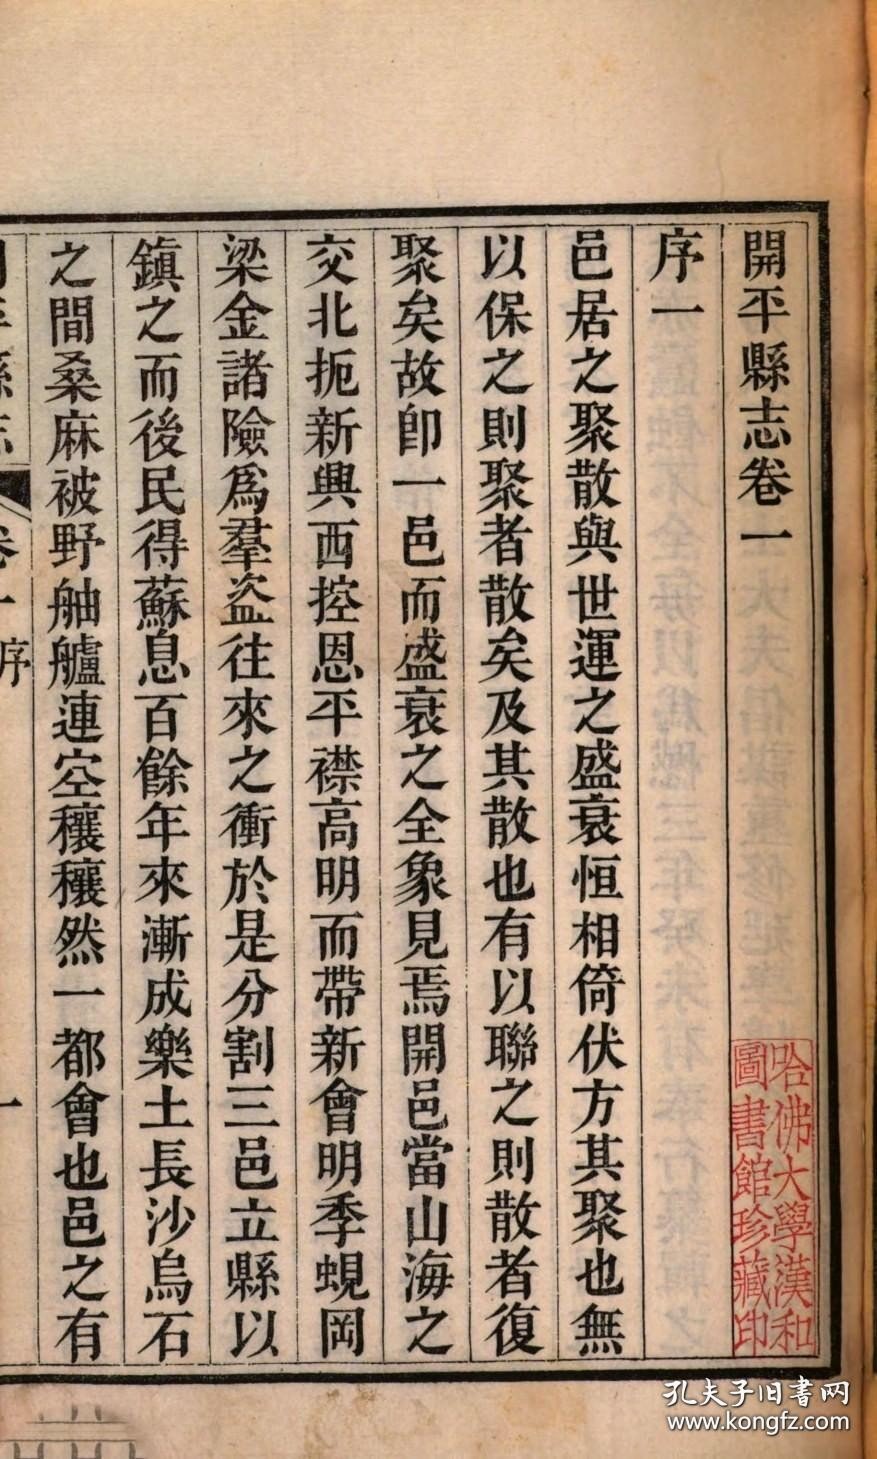 開平縣志卷一
序一
邑居之聚散與世運之盛衰恒相倚伏方其聚也無
以保之則聚者散矣及其散也有以聯之則散者復
聚矣故卽一邑而盛衰之全象見焉開邑當山海之
交北扼新興西控恩平襟高明而帶新會明季蜆岡
梁金諸險爲羣盗往來之衝於是分割三邑立縣以
鎮之而後民得蘇息百餘年來漸成樂土長沙烏石
之間桑麻被野舳艫連空穰穰然一都會也邑之有
開平縣志
卷一序
一
哈佛大學漢和
圖書館珍藏印
孔夫子旧書网
www.kongfz.com